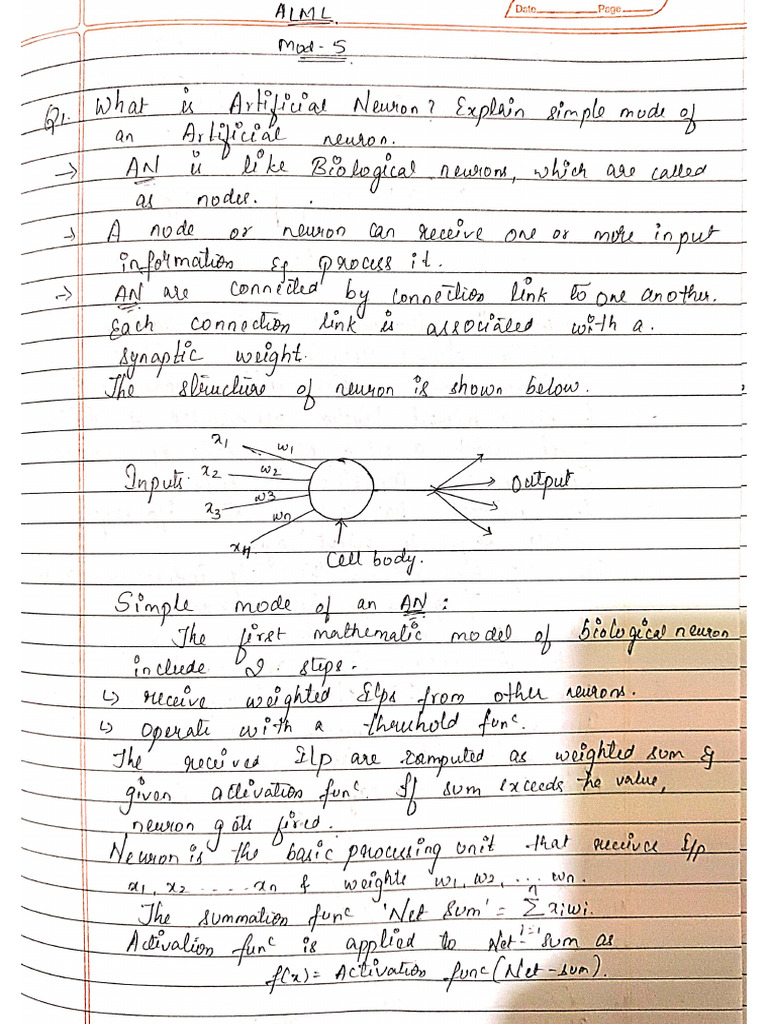 AIML.
Date Page
Mod-5
Q1. What is Artificial Neuron? Explain simple mode of
an Artificial neuron.
→ AN is like Biological neurons, which are called
as nodes.
→ A node or neuron can receive one or more input
information & process it.
→ AN are connected by connection link to one another.
Each connection link is associated with a
synaptic weight.
The structure of neuron is shown below.
x1 w1
Inputs. x2 w2 Output
x3 w3
xn wn
Cell body.
Simple mode of an AN:
The first mathematic model of biological neuron
include 2 steps.
↳ receive weighted I/ps from other neurons.
↳ operate with a threshold func.
The received I/p are computed as weighted sum &
given activation func. If sum exceeds the value,
neuron gets fired.
Neuron is the basic processing unit that receives I/p
x1, x2 ..... xn & weights w1, w2, ... wn.
The summation func 'Net Sum' = n∑i=1 xiwi.
Activation func is applied to Net-sum as
f(x) = Activation func (Net-sum).